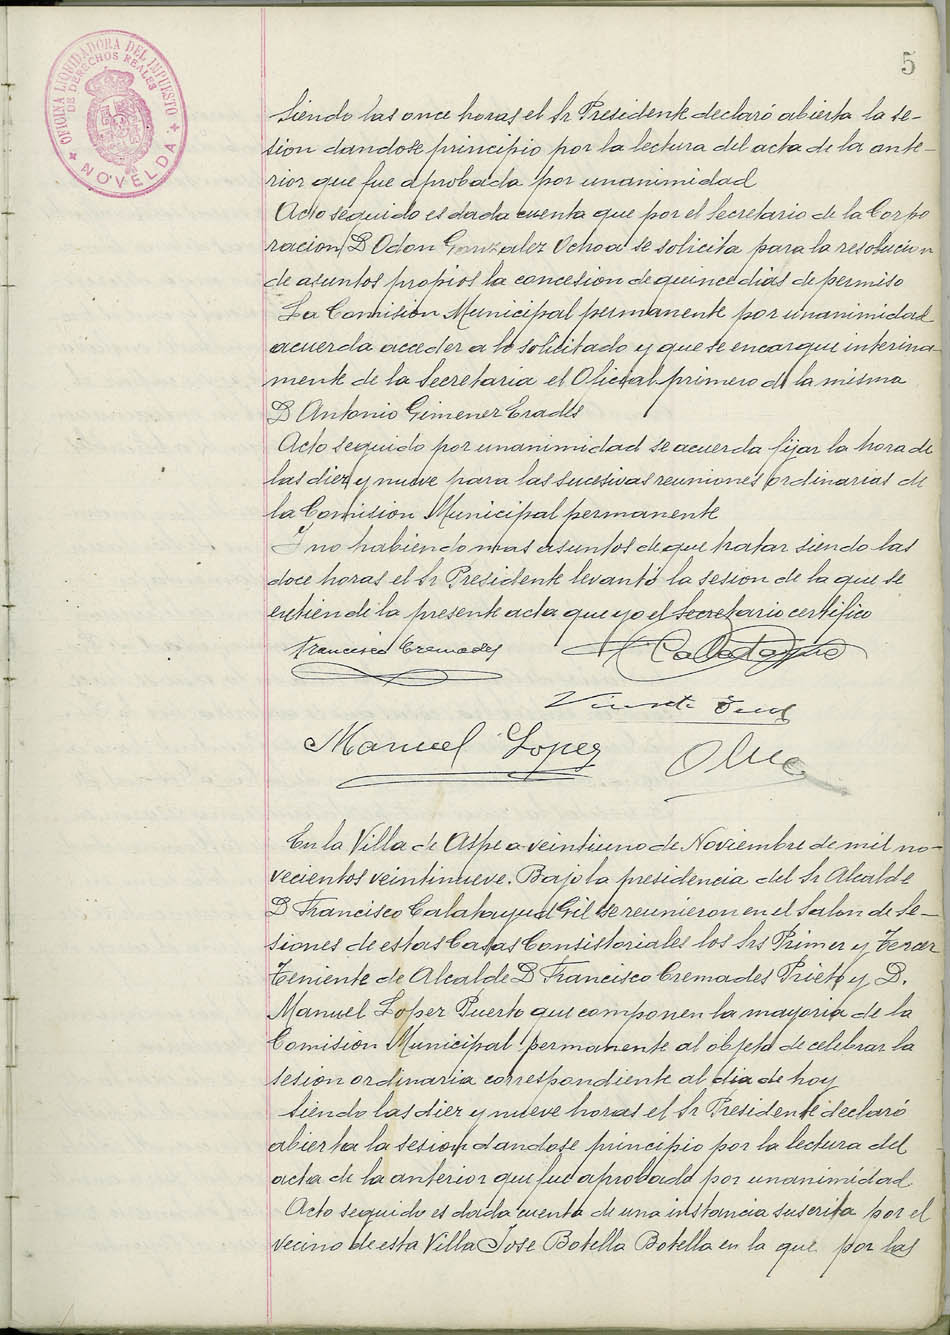 5
OFICINA LIQUIDADORA DEL IMPUESTO
DE DERECHOS REALES
NOVELDA
Siendo las once horas el Sr Presidente declaró abierta la se-
sion dandose principio por la lectura del acta de la ante-
rior que fue aprobada por unanimidad
Acto seguido es dada cuenta que por el Secretario de la Corpo
racion D Odon Gonzalez Ochoa se solicita para la resolucion
de asuntos propios la concesion de quince dias de permiso
La Comision Municipal permanente por unanimidad
acuerda acceder a lo solicitado y que se encargue interina-
mente de la Secretaria el Oficial primero de la misma
D Antonio Gimenez Erades
Acto seguido por unanimidad se acuerda fijar la hora de
las diez y nueve para las sucesivas reuniones ordinarias de
la Comision Municipal permanente
Y no habiendo mas asuntos de que tratar siendo las
doce horas el Sr Presidente levantó la sesion de la que se
extiende la presente acta que yo el Secretario certifico
Francisco Cremades
Calatayud
Manuel Lopez
En la Villa de Aspe a veintiuno de Noviembre de mil no-
vecientos veintinueve. Bajo la presidencia del Sr Alcalde
D Francisco Calatayud Gil se reunieron en el Salon de Se-
siones de estas Casas Consistoriales los Srs Primer y Tercer
Teniente de Alcalde D Francisco Cremades Prieto y D.
Manuel Lopez Puerto que componen la mayoria de la
Comision Municipal permanente al objeto de celebrar la
sesion ordinaria correspondiente al dia de hoy
Siendo las diez y nueve horas el Sr Presidente declaró
abierta la sesion dandose principio por la lectura del
acta de la anterior que fue aprobada por unanimidad
Acto seguido es dada cuenta de una instancia suscrita por el
vecino de esta Villa Jose Botella Botella en la que por las